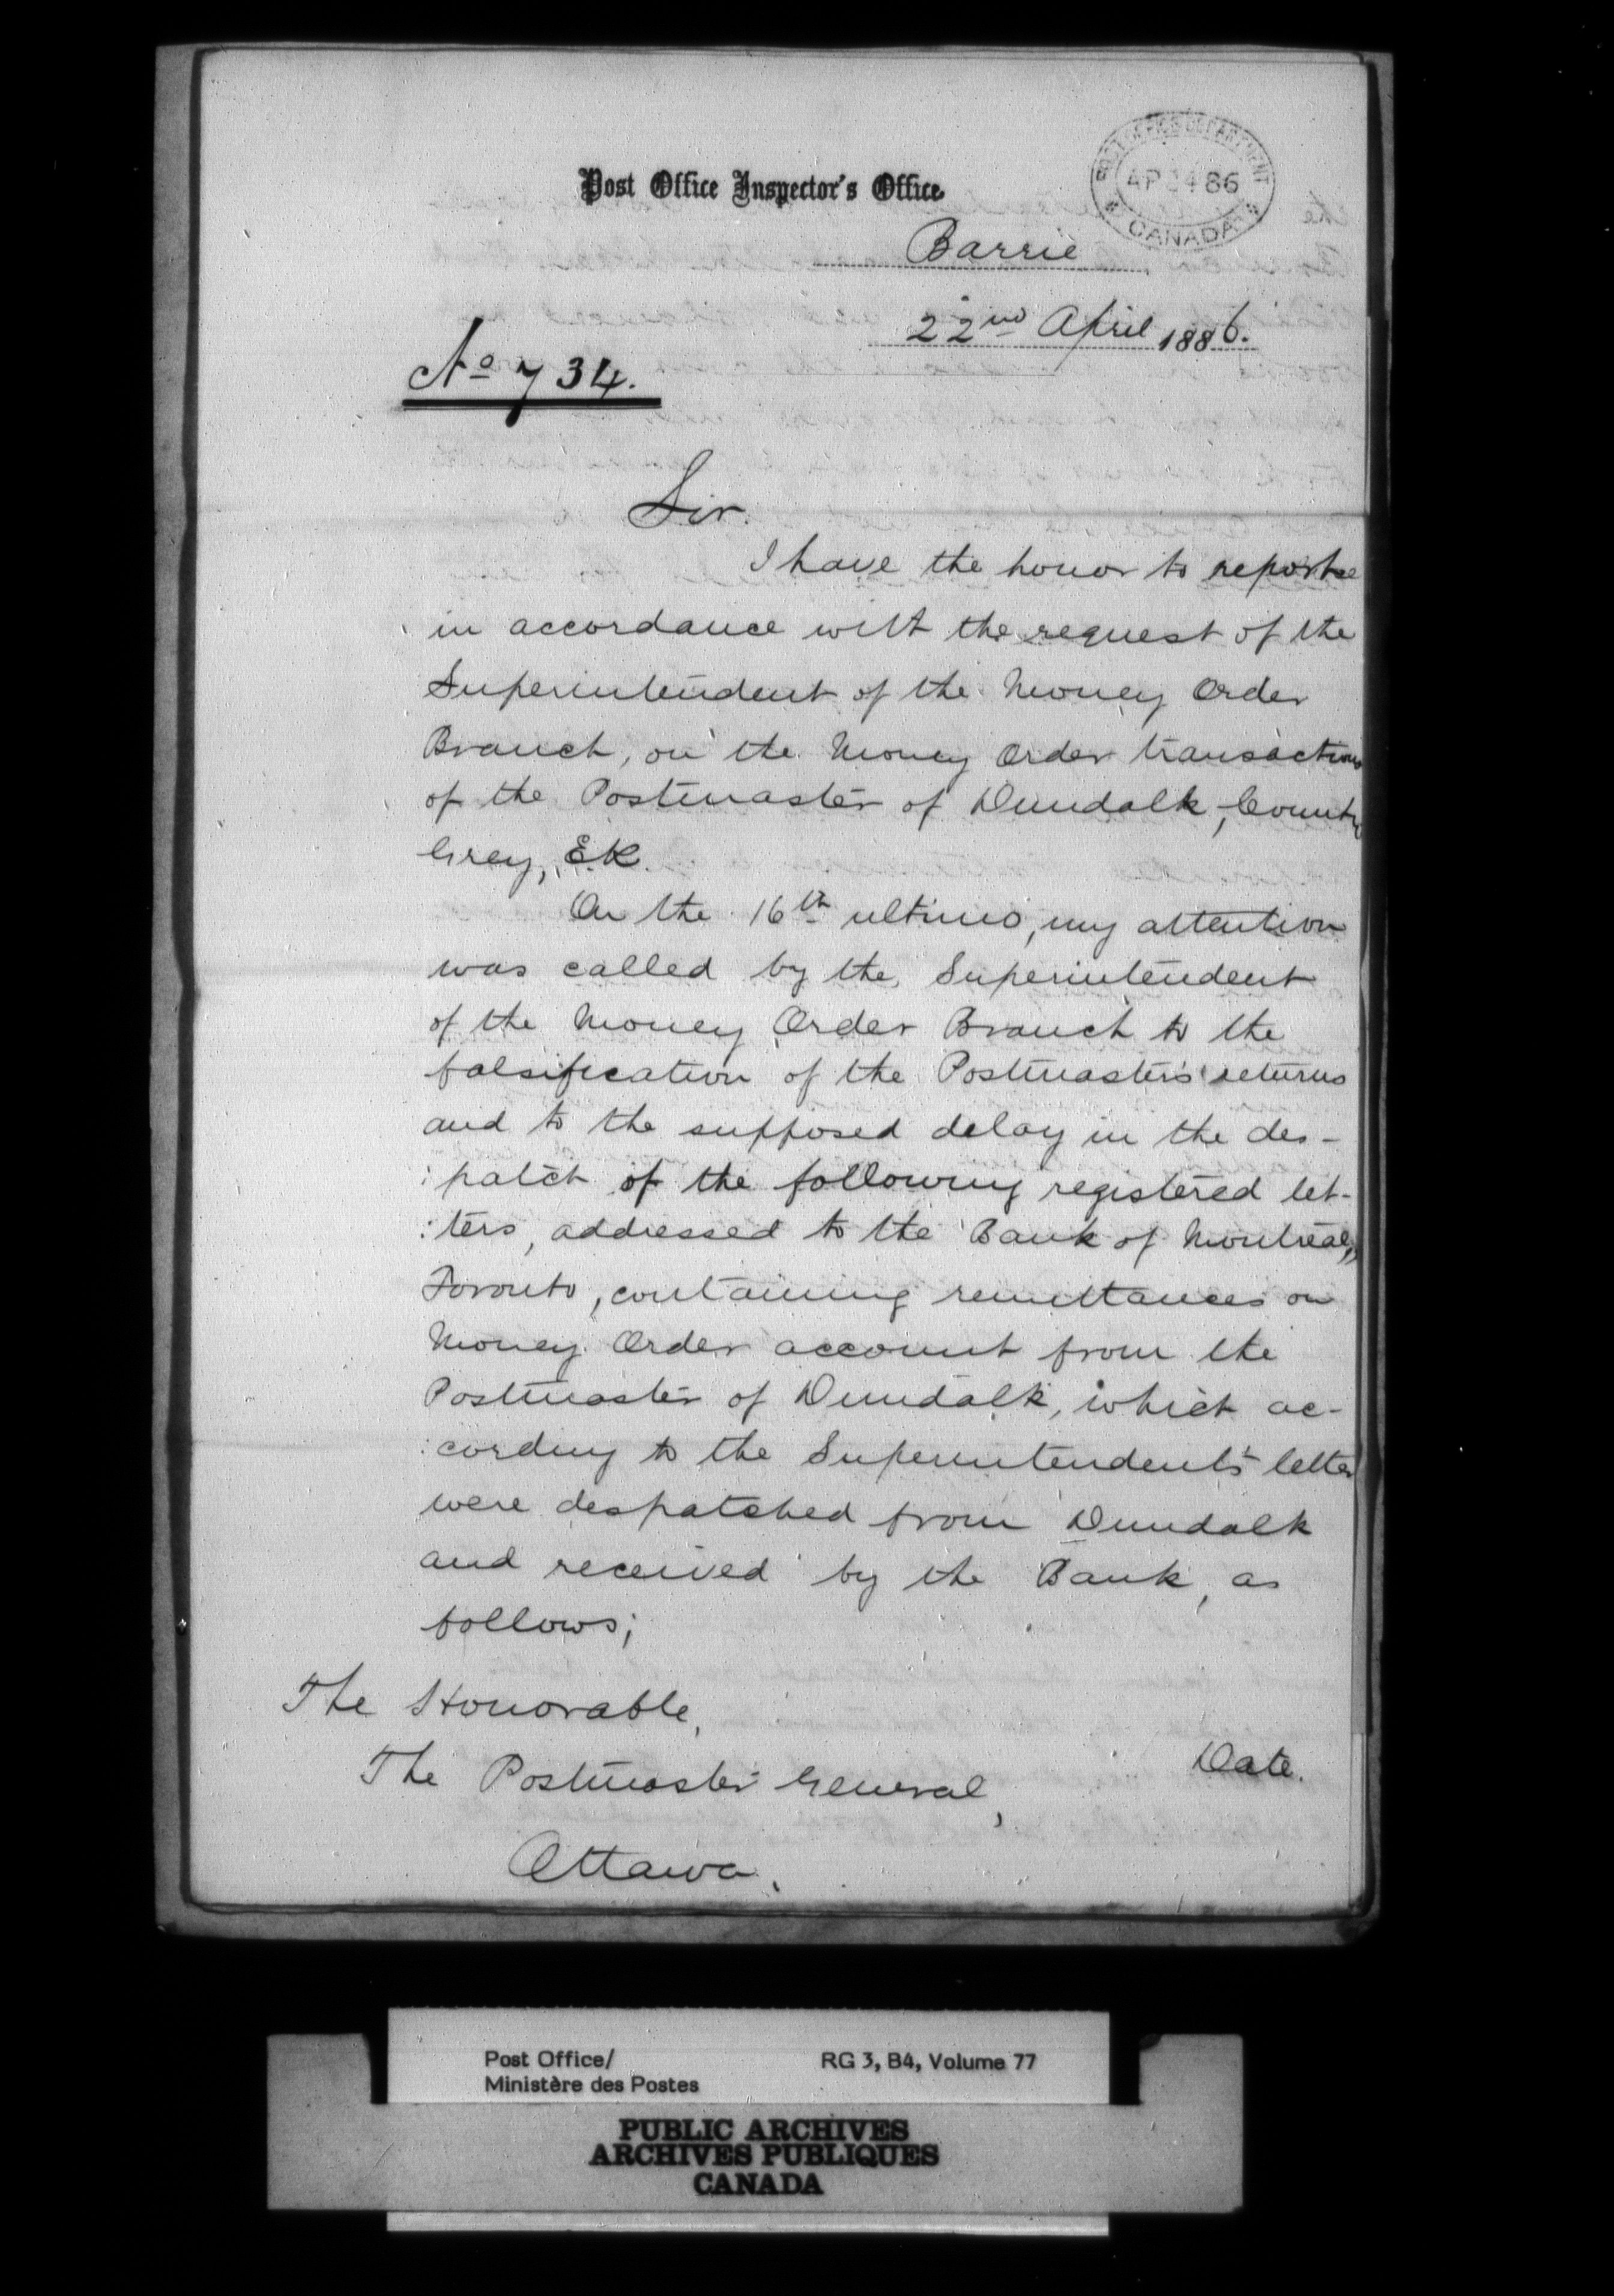 POST OFFICE DEPARTMENT
AP 24 86
CANADA
Post Office Inspector's Office
Barrie
22nd April 1886.
No 734.
Sir.
I have the honor to report
in accordance with the request of the
Superintendent of the Money Order
Branch, on the Money Order transactions
of the Postmaster of Dundalk, County
Grey, E.R.
On the 16th ultimo, my attention
was called by the Superintendent
of the Money Order Branch to the
falsification of the Postmaster's returns
and to the supposed delay in the des-
:patch of the following registered let-
:ters, addressed to the Bank of Montreal,
Toronto, containing remittances on
Money Order account from the
Postmaster of Dundalk, which ac-
:cording to the Superintendent's letter
were despatched from Dundalk
and received by the Bank, as
follows;
The Honorable,
The Postmaster General,
Date.
Ottawa.
Post Office/
Ministère des Postes
RG 3, B4, Volume 77
PUBLIC ARCHIVES
ARCHIVES PUBLIQUES
CANADA